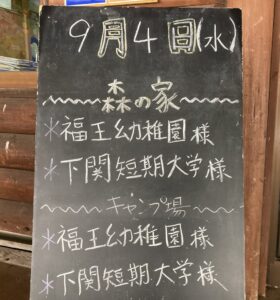 9月4日(水)
森の家
*福王幼稚園様
*下関短期大学様
キャンプ場
*福王幼稚園様
*下関短期大学様